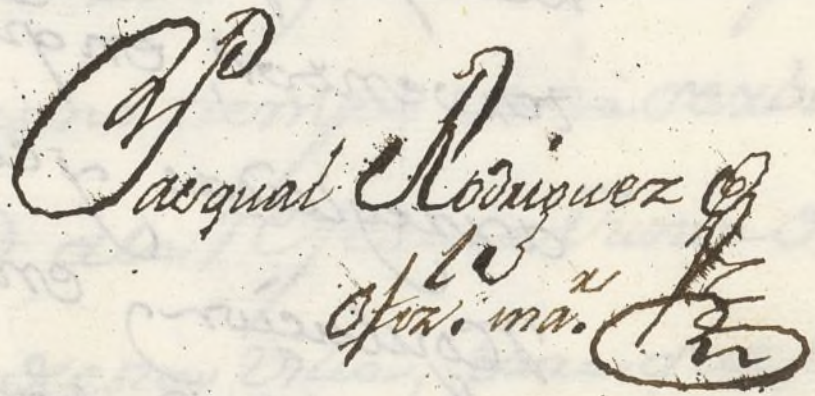 Pasqual Rodriguez
Ofiz.le ma.r